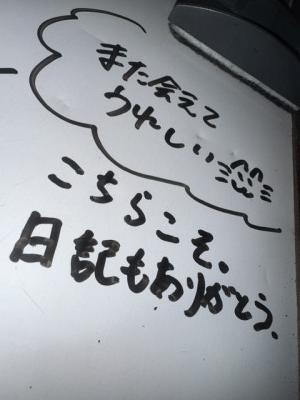 また会えて
うれしい
こちらこそ.
日記もありがとう.